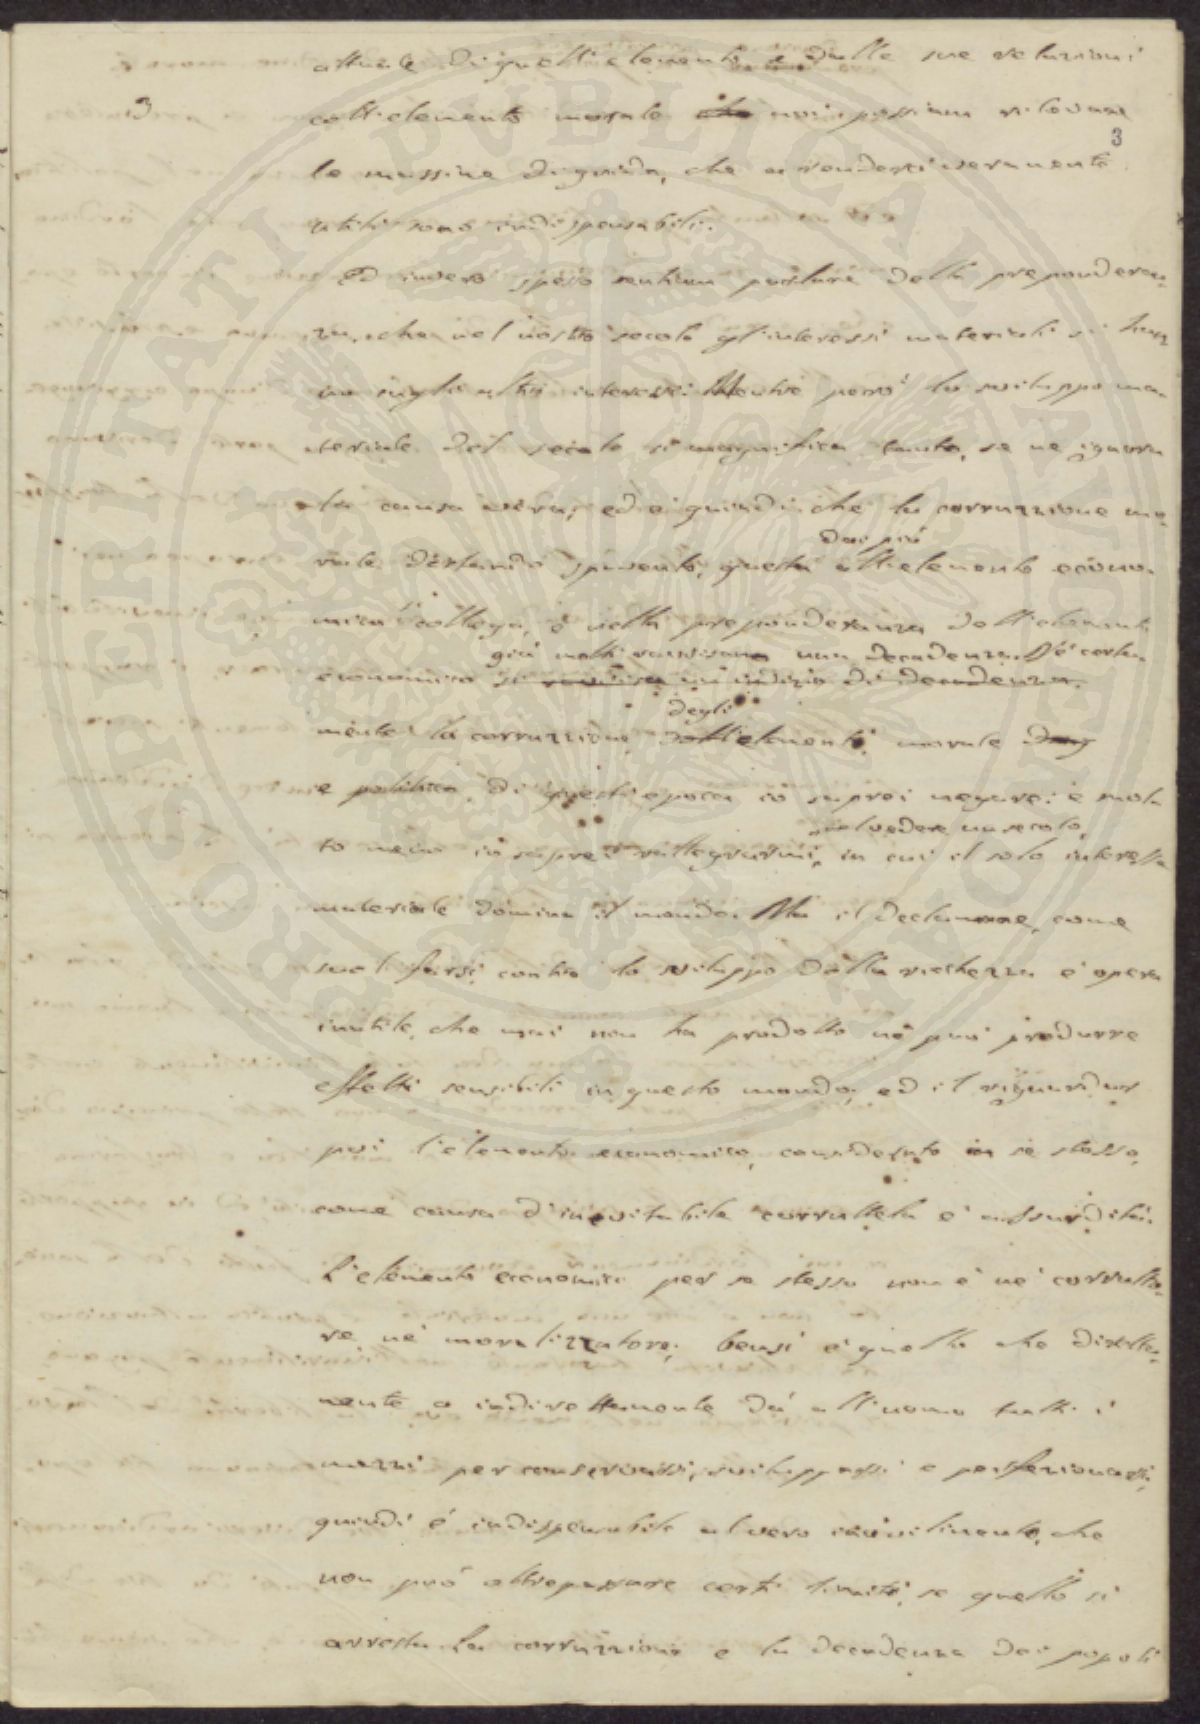 attuale di quell'elemento e dalle sue relazioni
3
coll'elemento morale che noi possiam rilevare
3
le massime di guida, che a renderci veramente
utili sono indispensabili.
Ed invero spesso sentiam parlare della preponderan-
za, che nel nostro secolo gl'interessi materiali si han
no sugli altri interessi. Mentre però lo sviluppo ma-
teriale del secolo si magnifica tanto, se ne ignora
la causa vera; ed è quindi che la corruzione mo-
dai più
rale destando spavento, questa all'elemento econo-
mico collega, e nella preponderanza dell'elemento
già molti ravvisano una decadenza. Nè certa
economico si ravvisa un indizio di decadenza.
degli
mente la corruzione dell'elementi, morale
e politico, di quest'epoca io saprei negare: e mol
nel vedere un secolo,
to meno io saprei rallegrarmi, in cui il solo interesse
materiale domina il mondo. Ma il declamare, come
suol farsi, contro lo sviluppo della ricchezza è opera
inutile, che mai non ha prodotto nè può produrre
effetti sensibili in questo mondo; ed il riguardar
poi l'elemento economico, considerato in se stesso,
come causa d'inevitabile corruttela è assurdità.
L'elemento economico per se stesso non è nè corrutto-
re nè moralizzatore; bensì è quello che diretta-
mente o indirettamente dà all'uomo tutti i
mezzi per conservarsi, svilupparsi e perfezionarsi;
quindi è indispensabile al vero incivilimento, che
non può oltrepassare certi limiti, se quello si
arresta. La corruzione e la decadenza dei popoli